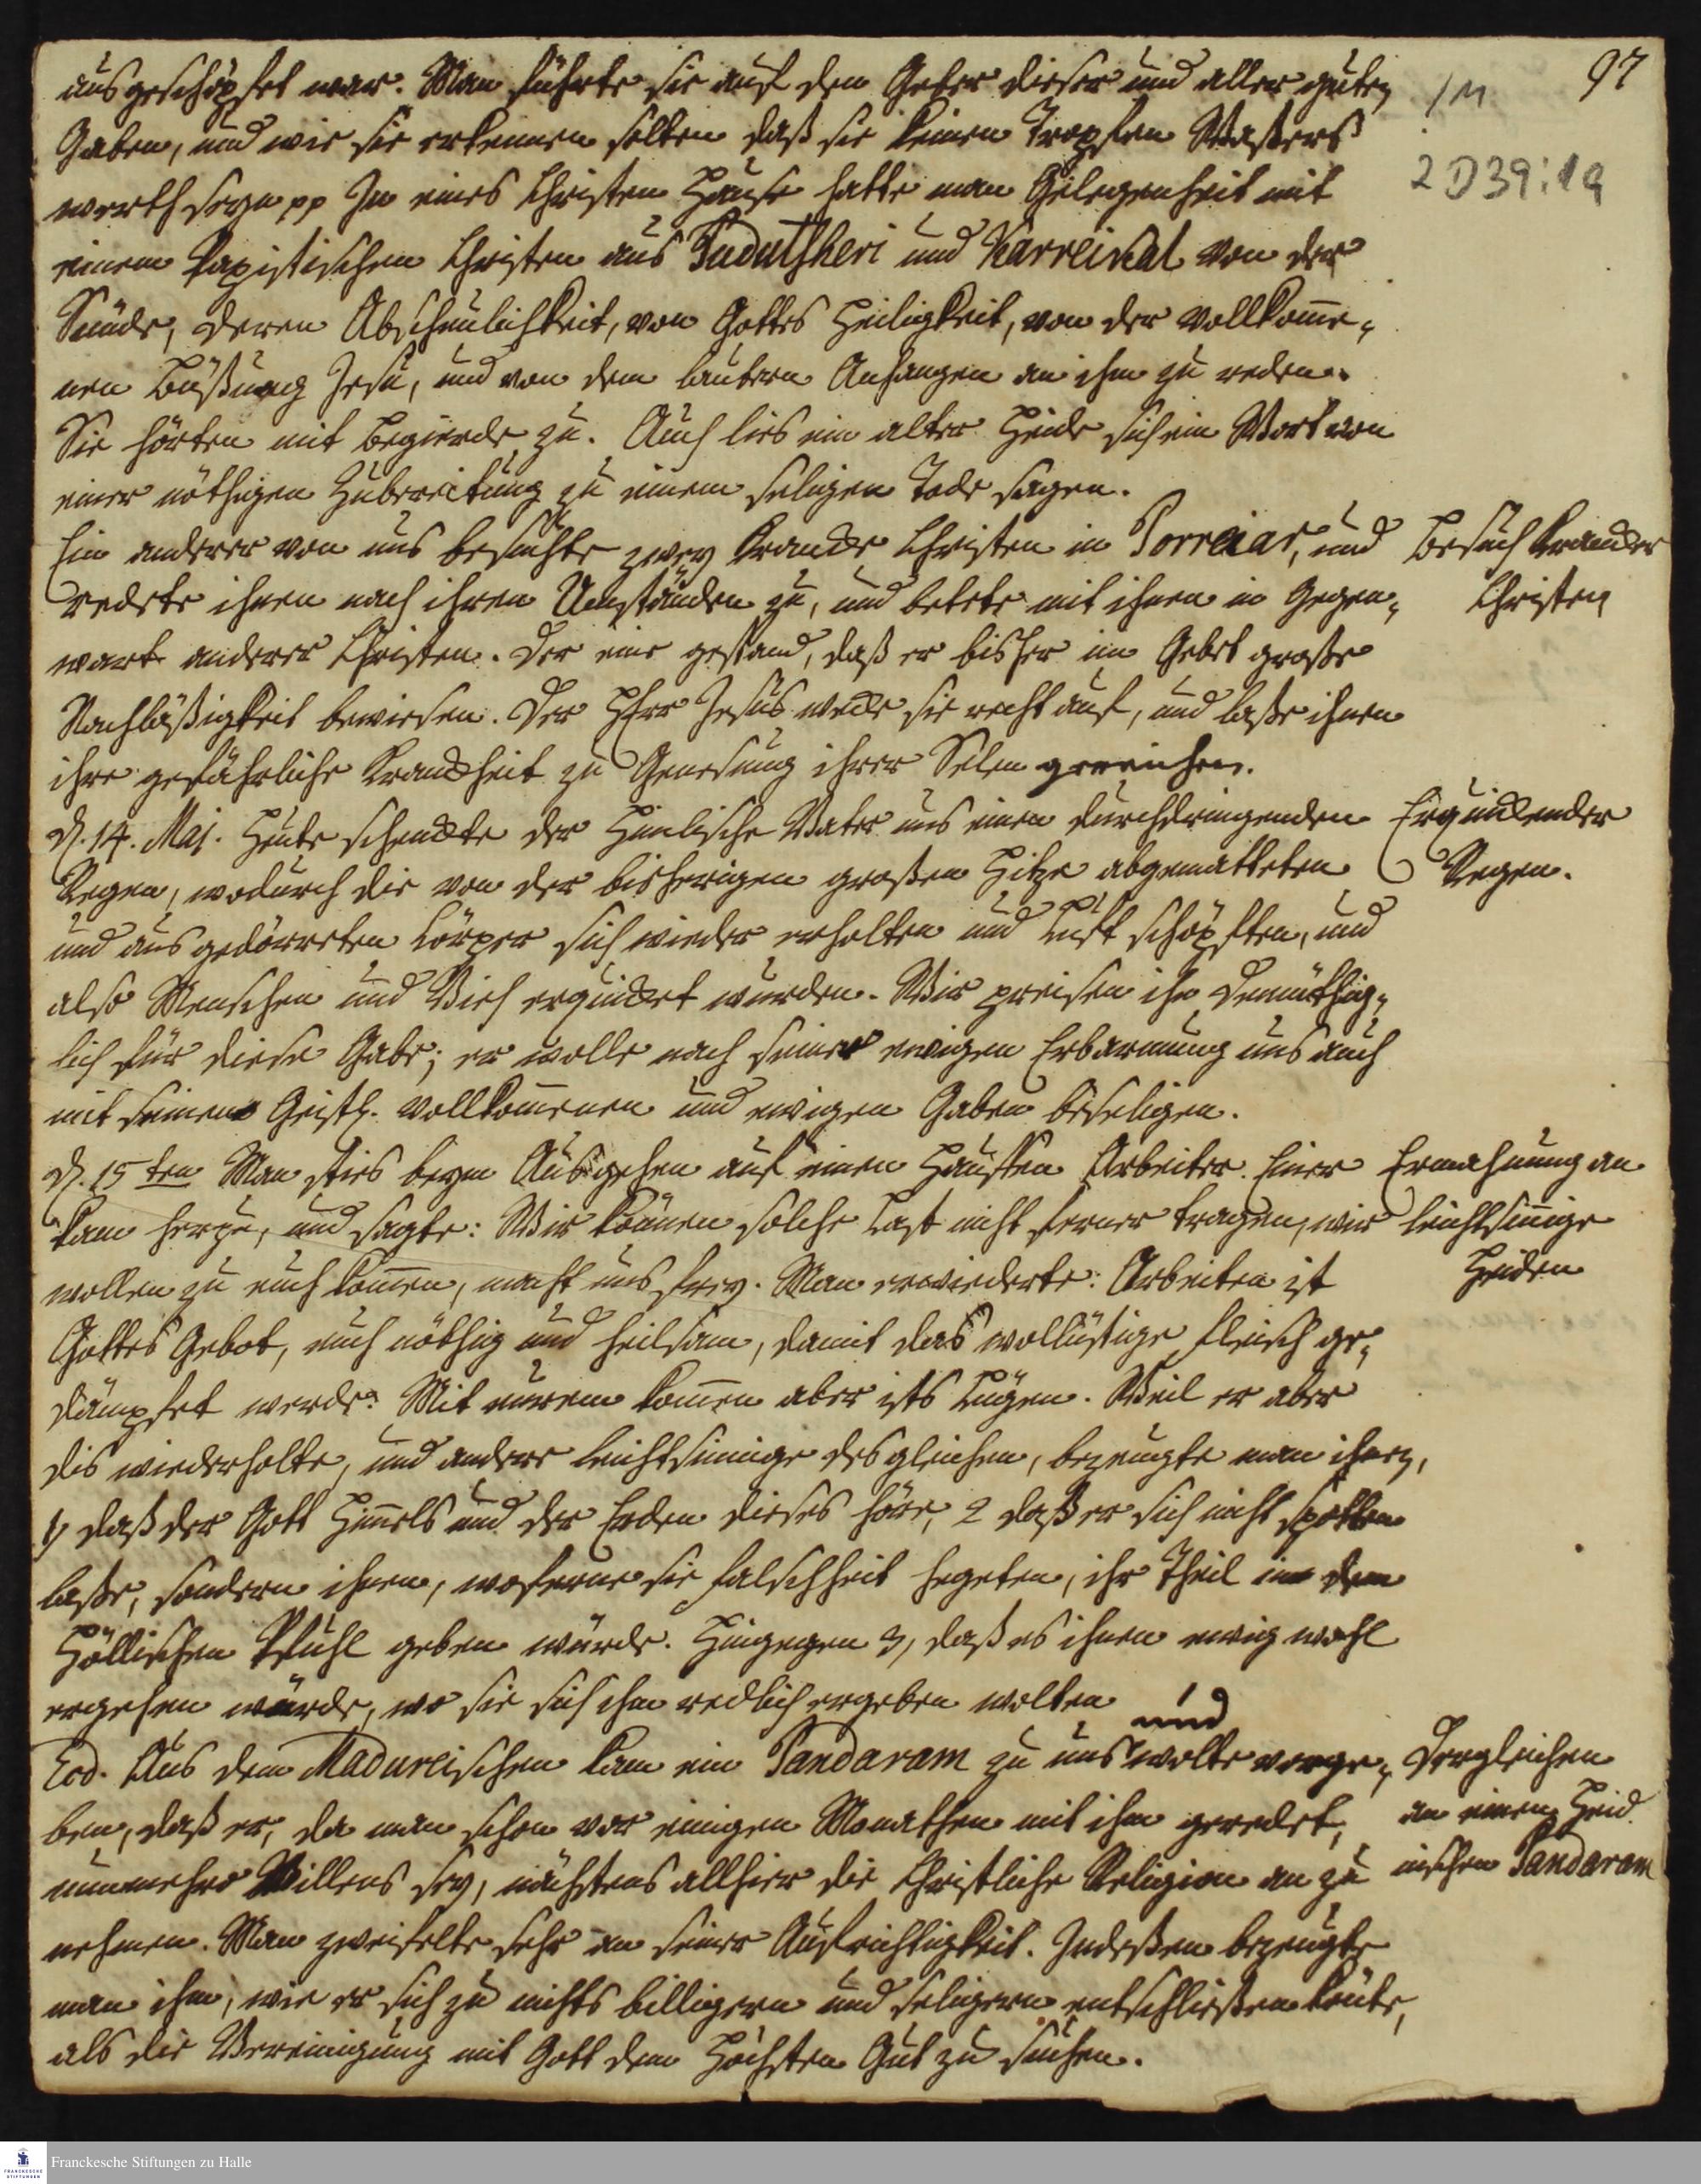 97
1 M
2 D39:19
ausgeschöpfet war. Man führte sie auf den Geber dieser und aller guten
Gaben, und wie sie erkennen solten daß sie keinen Tropfen Waßers
werth seyn pp In eines Christen Hause hatte man Gelegenheit mit
einem Papistischen Christen aus Pudutsheri und Karreikal von der
Sünde, deren Abscheulichkeit, von Gottes Heiligkeit, von der vollkom̅e-
nen Büßung Jesu, und von dem lautern Anhangen an ihm zu reden.
Sie hörten mit Begierde zu. Auch lies ein alter Heide sich ein Wort von
einer nöthigen Zubereitung zu einem seligen Tode sagen.
Ein anderer von uns besuchte zwey krancke Christen in Porreiar, und
Besuch krancker
redete ihnen nach ihren Umständen zu, und betete mit ihnen in Gegen-
Christen
wart anderer Christen. Der eine gestand, daß er bisher im Gebet große
Nachläßigkeit bewiesen. Der Herr Jesus wecke sie recht auf, und laße ihnen
ihre gefährliche Kranckheit zu Genesung ihrer Selen gereichen.
D. 14. Maj. Heute schenckte der Him̅lische Vater uns einen durchdringenden
Erquickender
Regen, wodurch die von der bisherigen großen Hitze abgematteten
Regen.
und ausgedörreten Körper sich wieder erholten und Luft schöpften, und
also Menschen und Vieh erquicket wurden. Wir preisen ihn demüthig-
lich für diese Gabe; er wolle nach seiner ewigen Erbarmung uns auch
mit seinen Geistl. vollkom̅enen und ewigen Gaben beseligen.
D. 15ten Man sties beym Ausgehen auf einen Hauffen Arbeiter. Einer
Ermahnung an
kam herzu, und sagte: Wir können solche Last nicht ferner tragen, wir
leichtsin̅ige
wollen zu euch kom̅en, macht uns frey. Man erwiederte: Arbeiten ist
Heiden
Gottes Gebot, auch nöthig und heilsam, damit das wollüstige Fleisch ge-
dämpfet werde. Mit eurem kom̅en aber ists Lügen. Weil er aber
dis wiederholte, und andere leichtsinnige desgleichen, bezeugte man ihnen,
1, daß der Gott Him̅els und der Erden dieses höre, 2 daß er sich nicht spotten
laße, sondern ihnen, woferne sie Falschheit hegeten, ihr Theil in dem
Höllischen Pfuhl geben würde. Hingegen 3, daß es ihnen ewig wohl
ergehen würde, wo sie sich ihm redlich ergeben wolten
und
Eod. Aus dem Madureischen kam ein Pandaram zu uns wolte vorge-
Dergleichen
ben, daß er, da man schon vor einigen Monathen mit ihm geredet,
an einen Heid-
nunmehro Willens sey, nächstens allhier die Christliche Religion an zu
nischen Pandaram
nehmen. Man zweifelte sehr an seiner Aufrichtigkeit. Indeßen bezeugte
man ihm, wie er sich zu nichts billigern und seligern entschließen könte,
als die Vereinigung mit Gott dem Höchsten Gut zu suchen.
Franckesche Stiftungen zu Halle